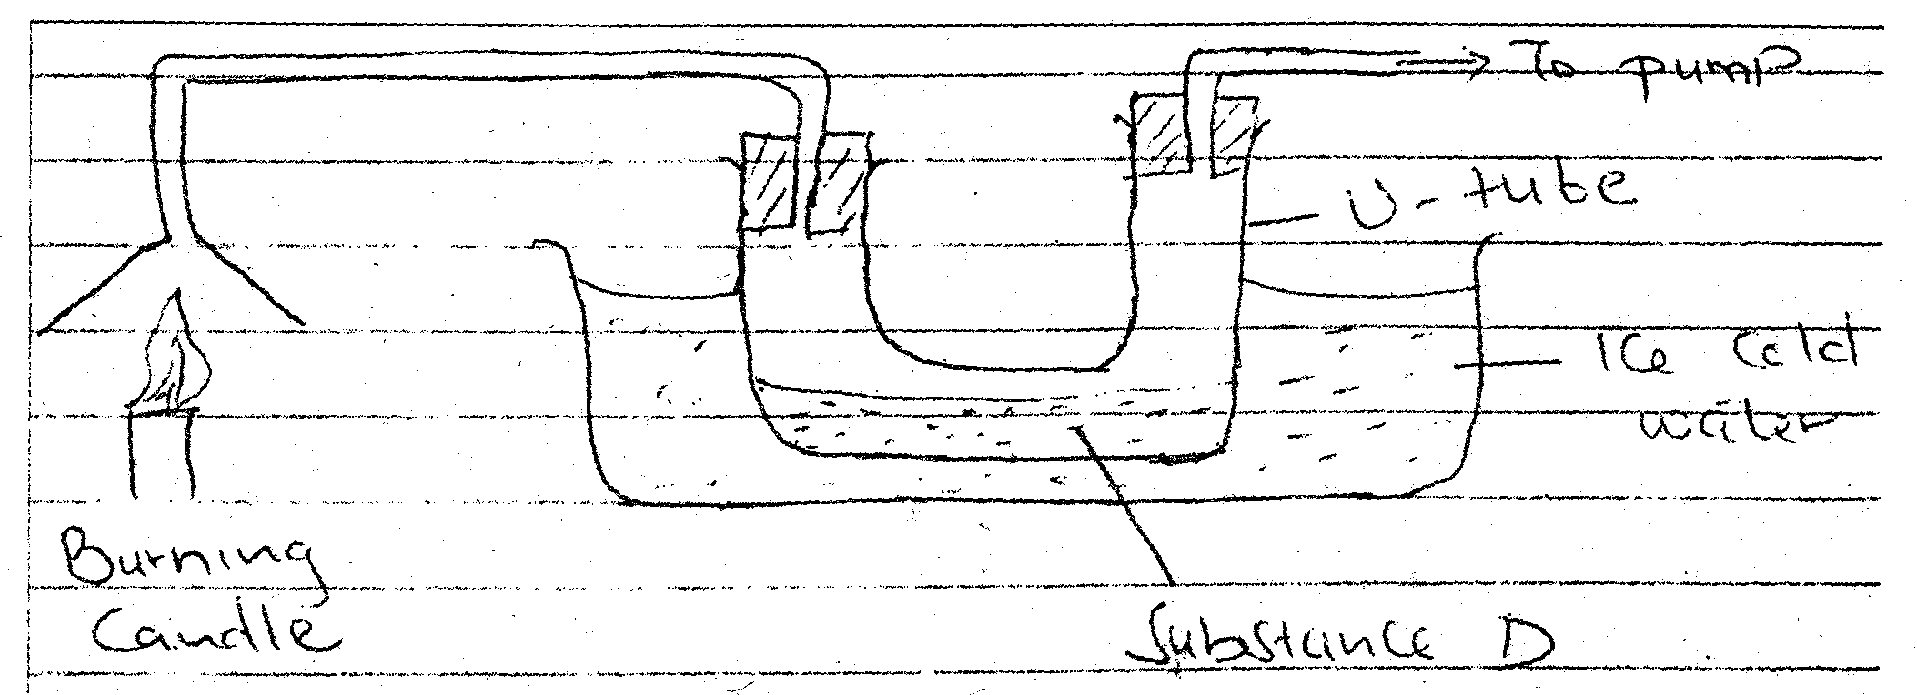 To pump
U-tube
Ice Cold
water
Burning
Candle
Substance D